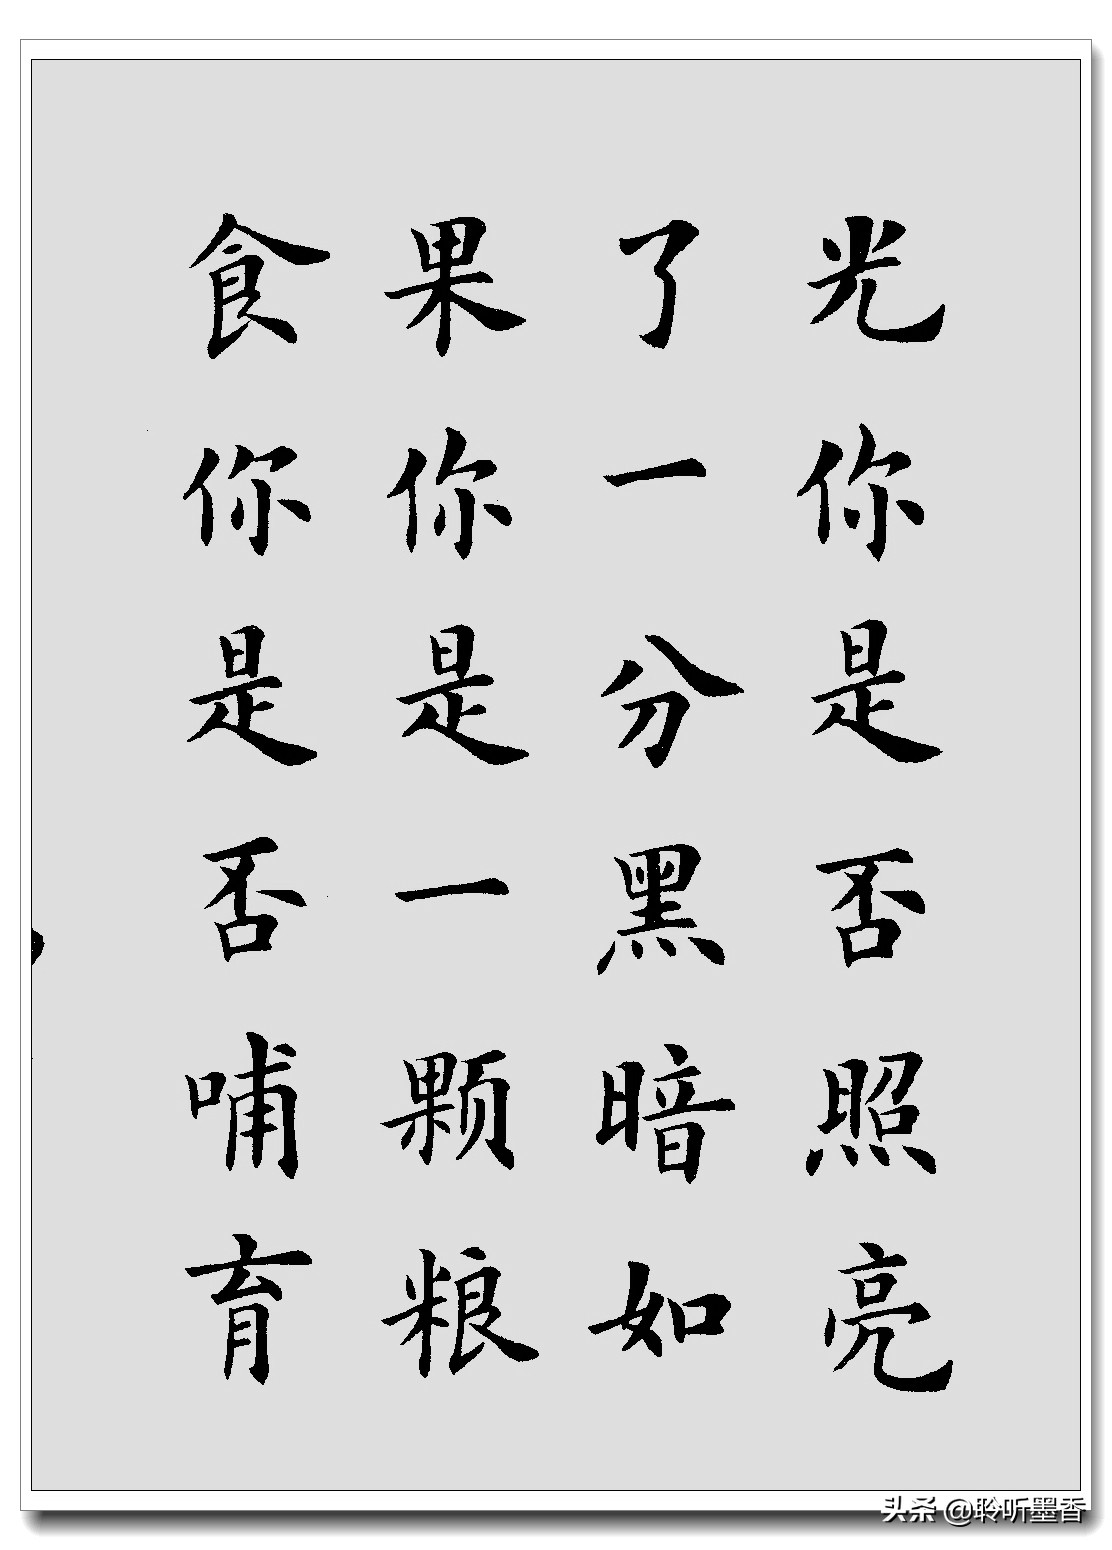 光你是否照亮
了一分黑暗如
果你是一颗粮
食你是否哺育
头条 @聆听墨香